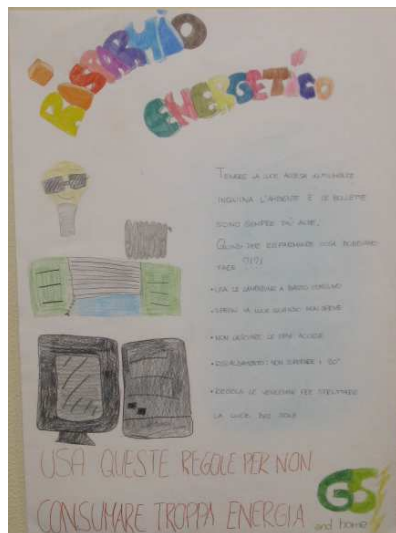 RISPARMIO
ENERGETICO
TENERE LA LUCE ACCESA INUTILMENTE
INQUINA L'AMBIENTE E LE BOLLETTE
SONO SEMPRE PIÙ ALTE.
QUINDI PER RISPARMIARE COSA DOBBIAMO
FARE ?!?!
• USA LE LAMPADINE A BASSO CONSUMO
• SPEGNI LA LUCE QUANDO NON SERVE
• NON LASCIARE LE SPIE ACCESE
• RISCALDAMENTO: NON SUPERARE I 20°
• REGOLA LE VENEZIANE PER SFRUTTARE
LA LUCE DEL SOLE
USA QUESTE REGOLE PER NON
CONSUMARE TROPPA ENERGIA
and home